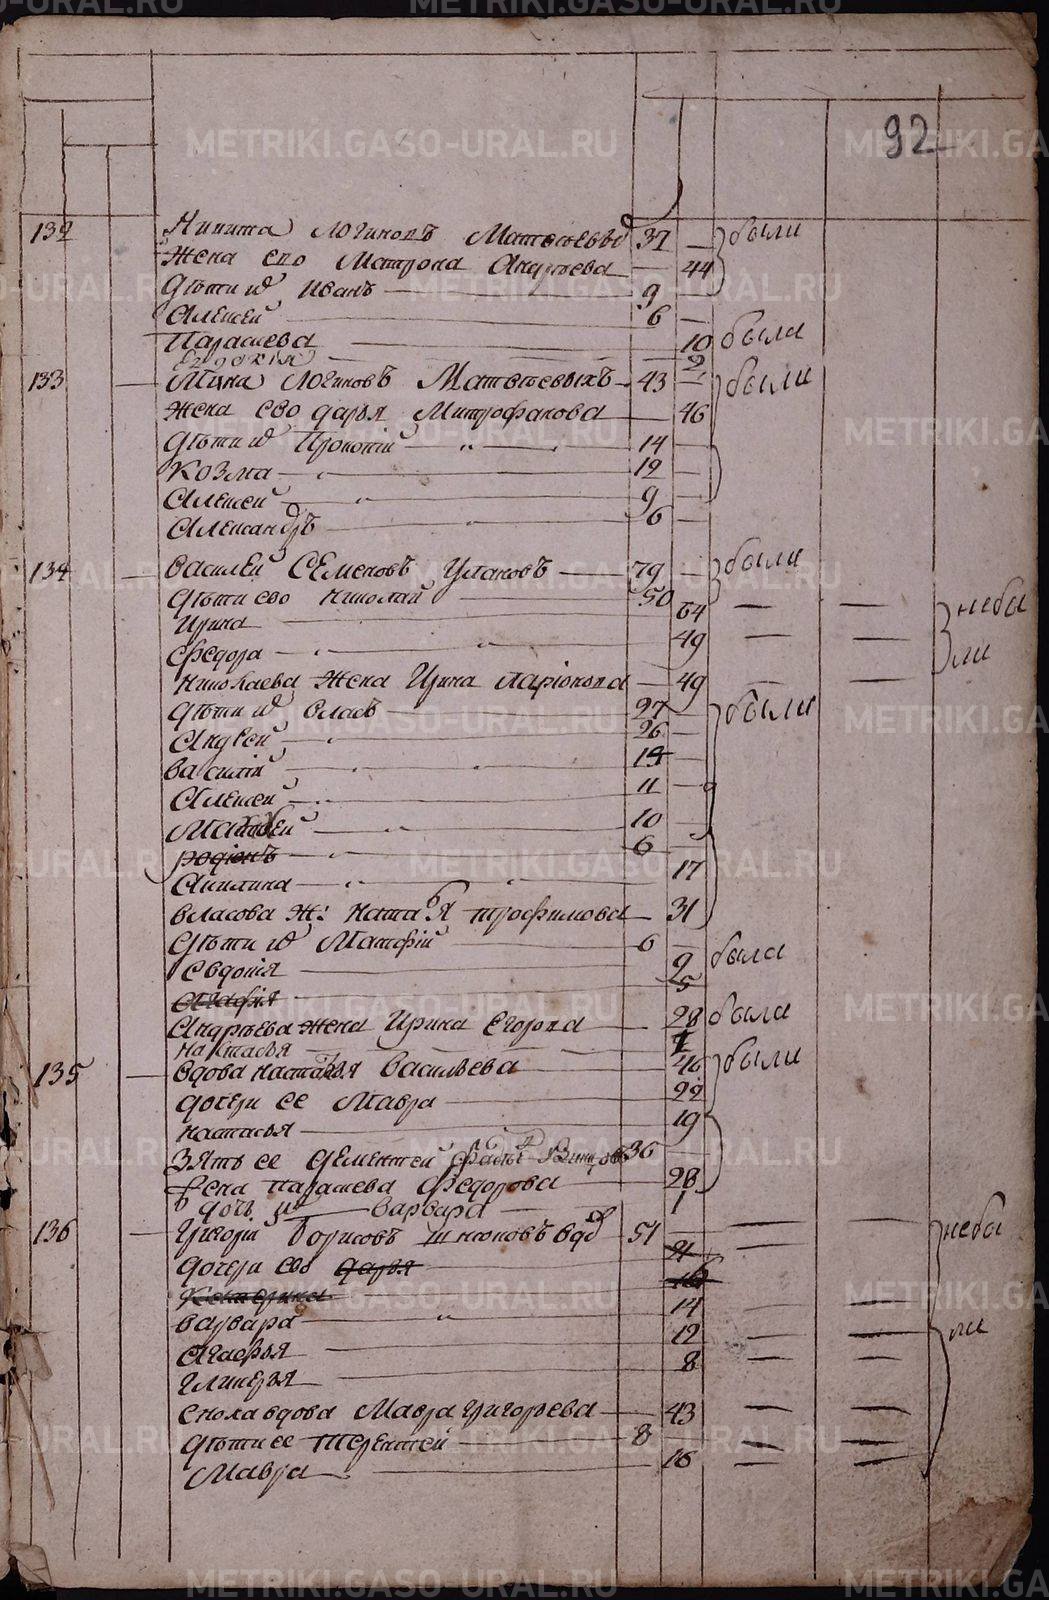 92
132 Никита Логиновъ Матвеевъ 37 — были
Жена его Матрона Андрѣева — 44
Дѣти их Иванъ — 9
Алексей — 6 —
Парасковея — 10 была
Евдокия — 2
133 — Мина Логиновъ Матвѣевыхъ — 43 — были
Жена ево Дарья Митрофанова — 46
Дѣти их Прокопій — 14 —
Козма — 12 —
Алексей — 9 —
Александръ — 6 —
134 — Василей Семеновъ Улановъ — 79 — были
Дѣти ево Николай — 50
Ирина — 64 — — небы
Федора — 49 — — ли
Николаева жена Ирина Ларіонова — 49 — —
Дѣти их Власъ — 27 — были
Андрей — 26 —
Василій — 15 —
Алексей — 11 —
Матвей — 10 —
Родіонъ — 6 —
Акилина — 17
Власова ж: Наталья Трофимова — 31
Дѣти их Матфій — 6 —
Евдокія — 9 была
Агафія — 5
Андрѣева жена Ирина Егорова — 28 была
Настасья — 1
135 — Вдова Наталья Васильева — 46 были
Дочери ее Мавра — 22
Наталья — 19
Зять ее Дементей 36 —
Жена Парасковея Федорова — 28
дочь их Варвара — 1
136 — Григорій Борисовъ вдов 51 — — — небы
Дочери ево Дарья — 21 —
Катерина
Варвара — 14 — — ли
Агафья — 12 — —
Гликерья — 8 — —
Сноха вдова Мавра Григорьева — 43 — —
Дѣти ее Терентей — 8 — —
Мавра — 16 — —
METRIKI.GASO-URAL.RU